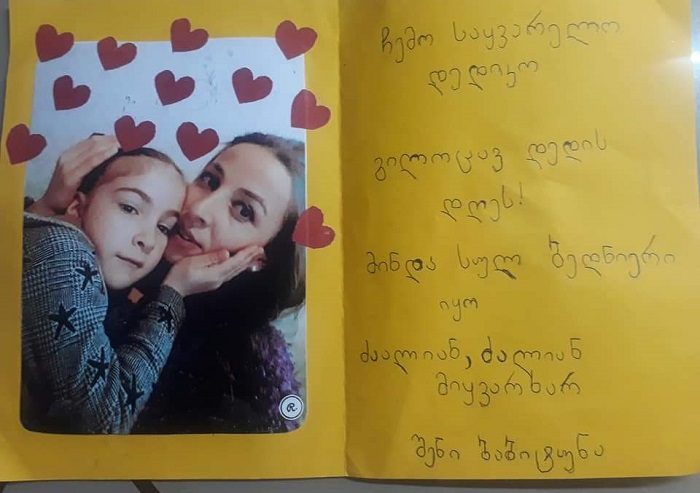 ჩემო საყვარელო
დედიკო
გილოცავ დედის
დღეს!
მინდა სულ ბედნიერი
იყო
ძაალიან, ძალიან
მიყვარხარ
შენი ბაბიტუნა
R.